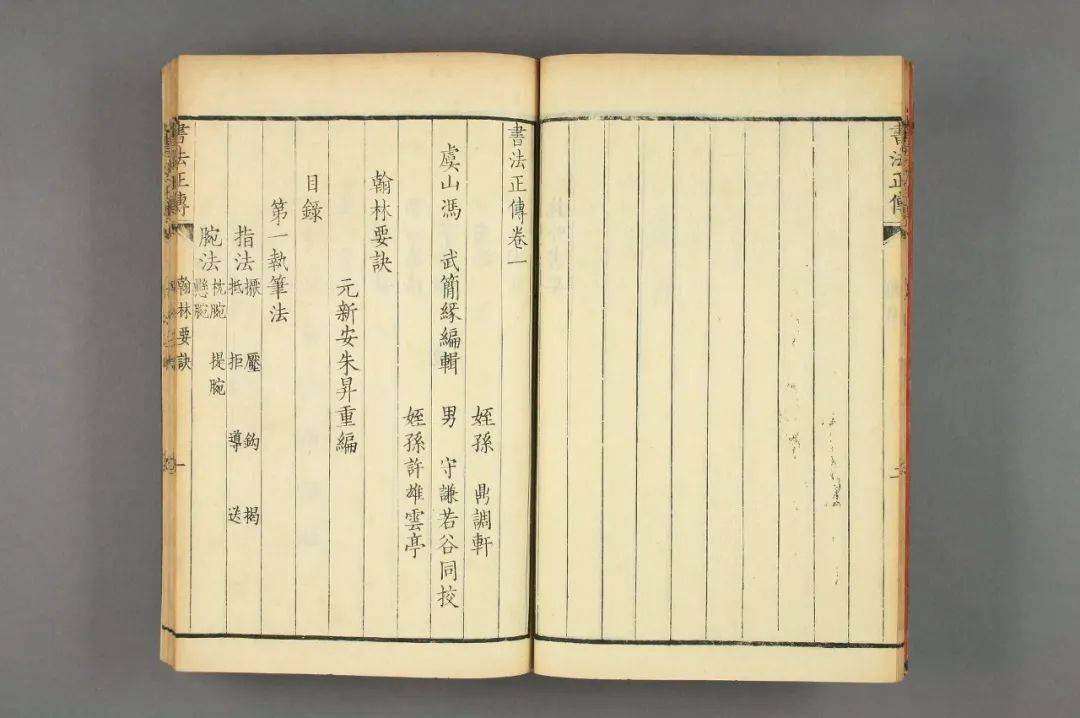 書法正傳
書法正傳卷一
姪孫 鼎調軒
虞山馮 武簡緣編輯 男 守謙若谷同挍
姪孫許雄雲亭
翰林要訣
元新安朱昇重編
目錄
第一執筆法
指法 擫 壓 鈎 揭
抵 拒 導 送
腕法 枕腕 提腕
懸腕
書法正傳 翰林要訣 一